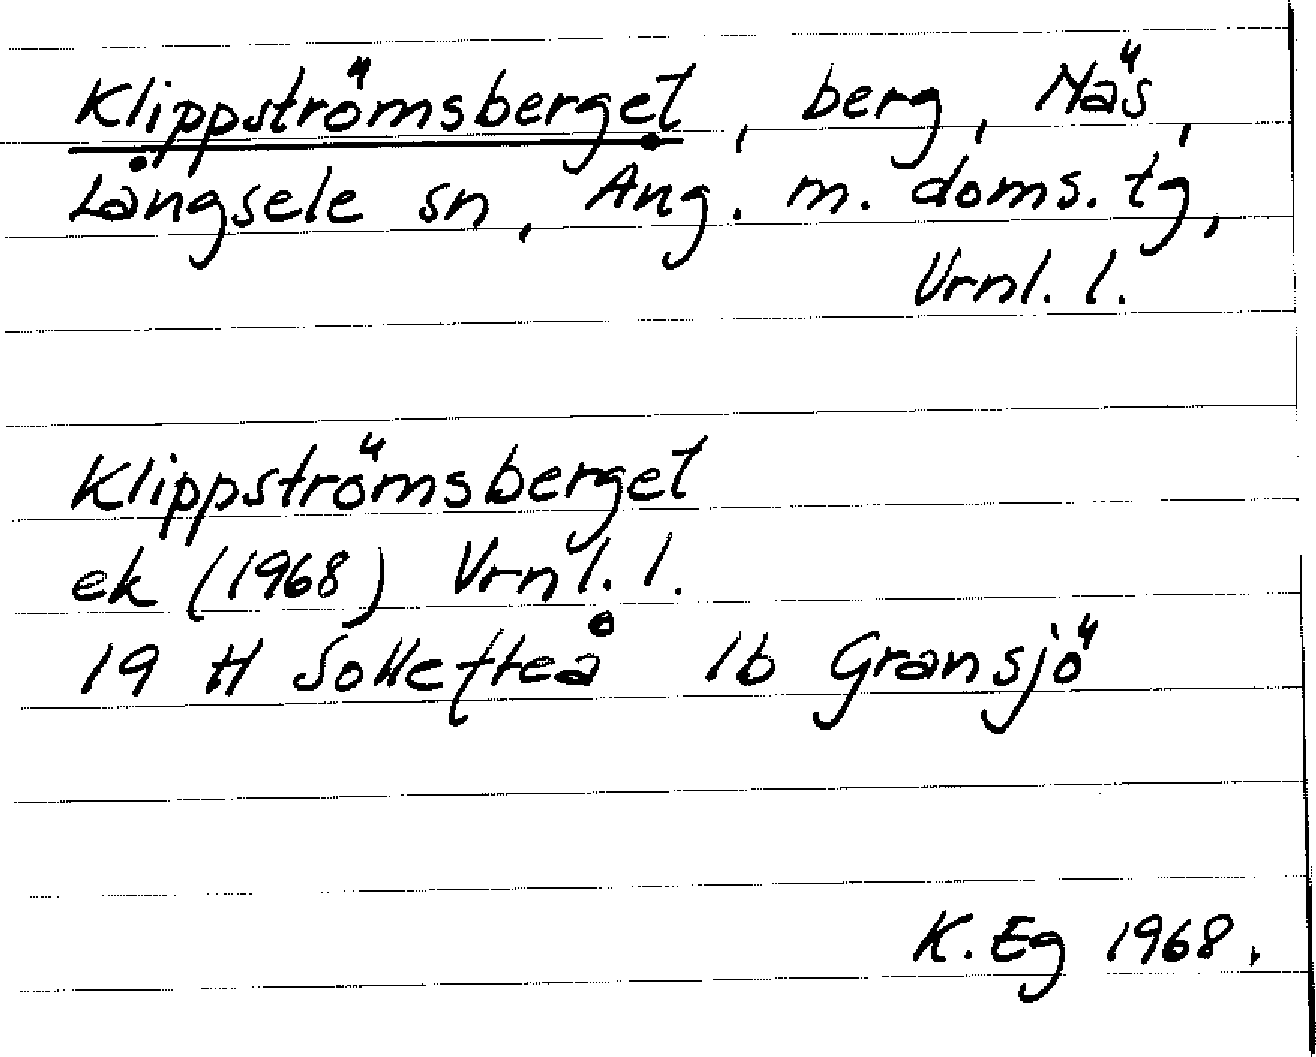 Klippströmsberget, berg, Näs,
Långsele sn, Ång. m. doms. tg,
Vrnl. l.
Klippströmsberget
ek (1968) Vrnl. l.
19 H Sollefteå 1b Gransjö
K. Eg 1968.